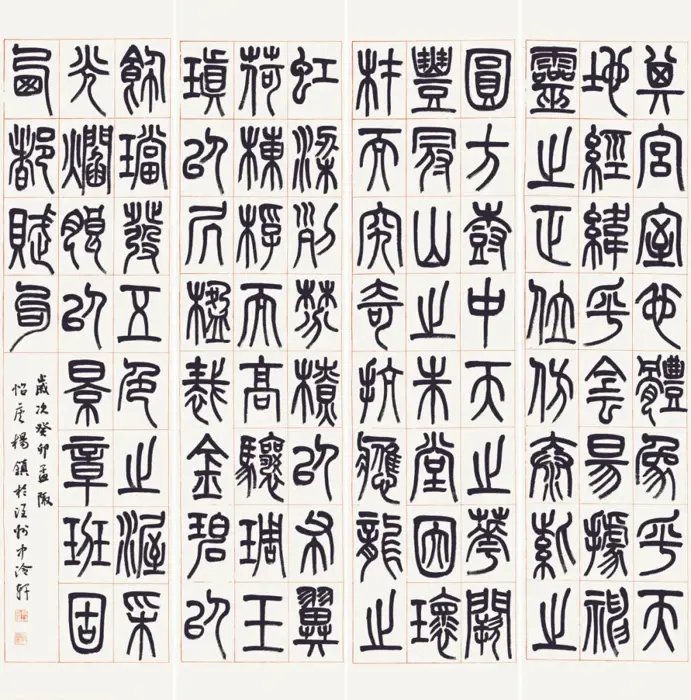 其宮室也體象乎天
地經緯乎侌昜據坤
靈之正位仿泰紫之
圓方尌中天之華闕
豐冠山之朱堂因瓌
材而究奇抗應龍之
虹梁列棼橑以布翼
荷棟桴而高驤琱玉
瑱以居楹裁金碧以
飾璫發五色之渥采
光爛朗以景章班固
西都賦句
歲次癸卯孟陬
怡楊鎮於泠軒